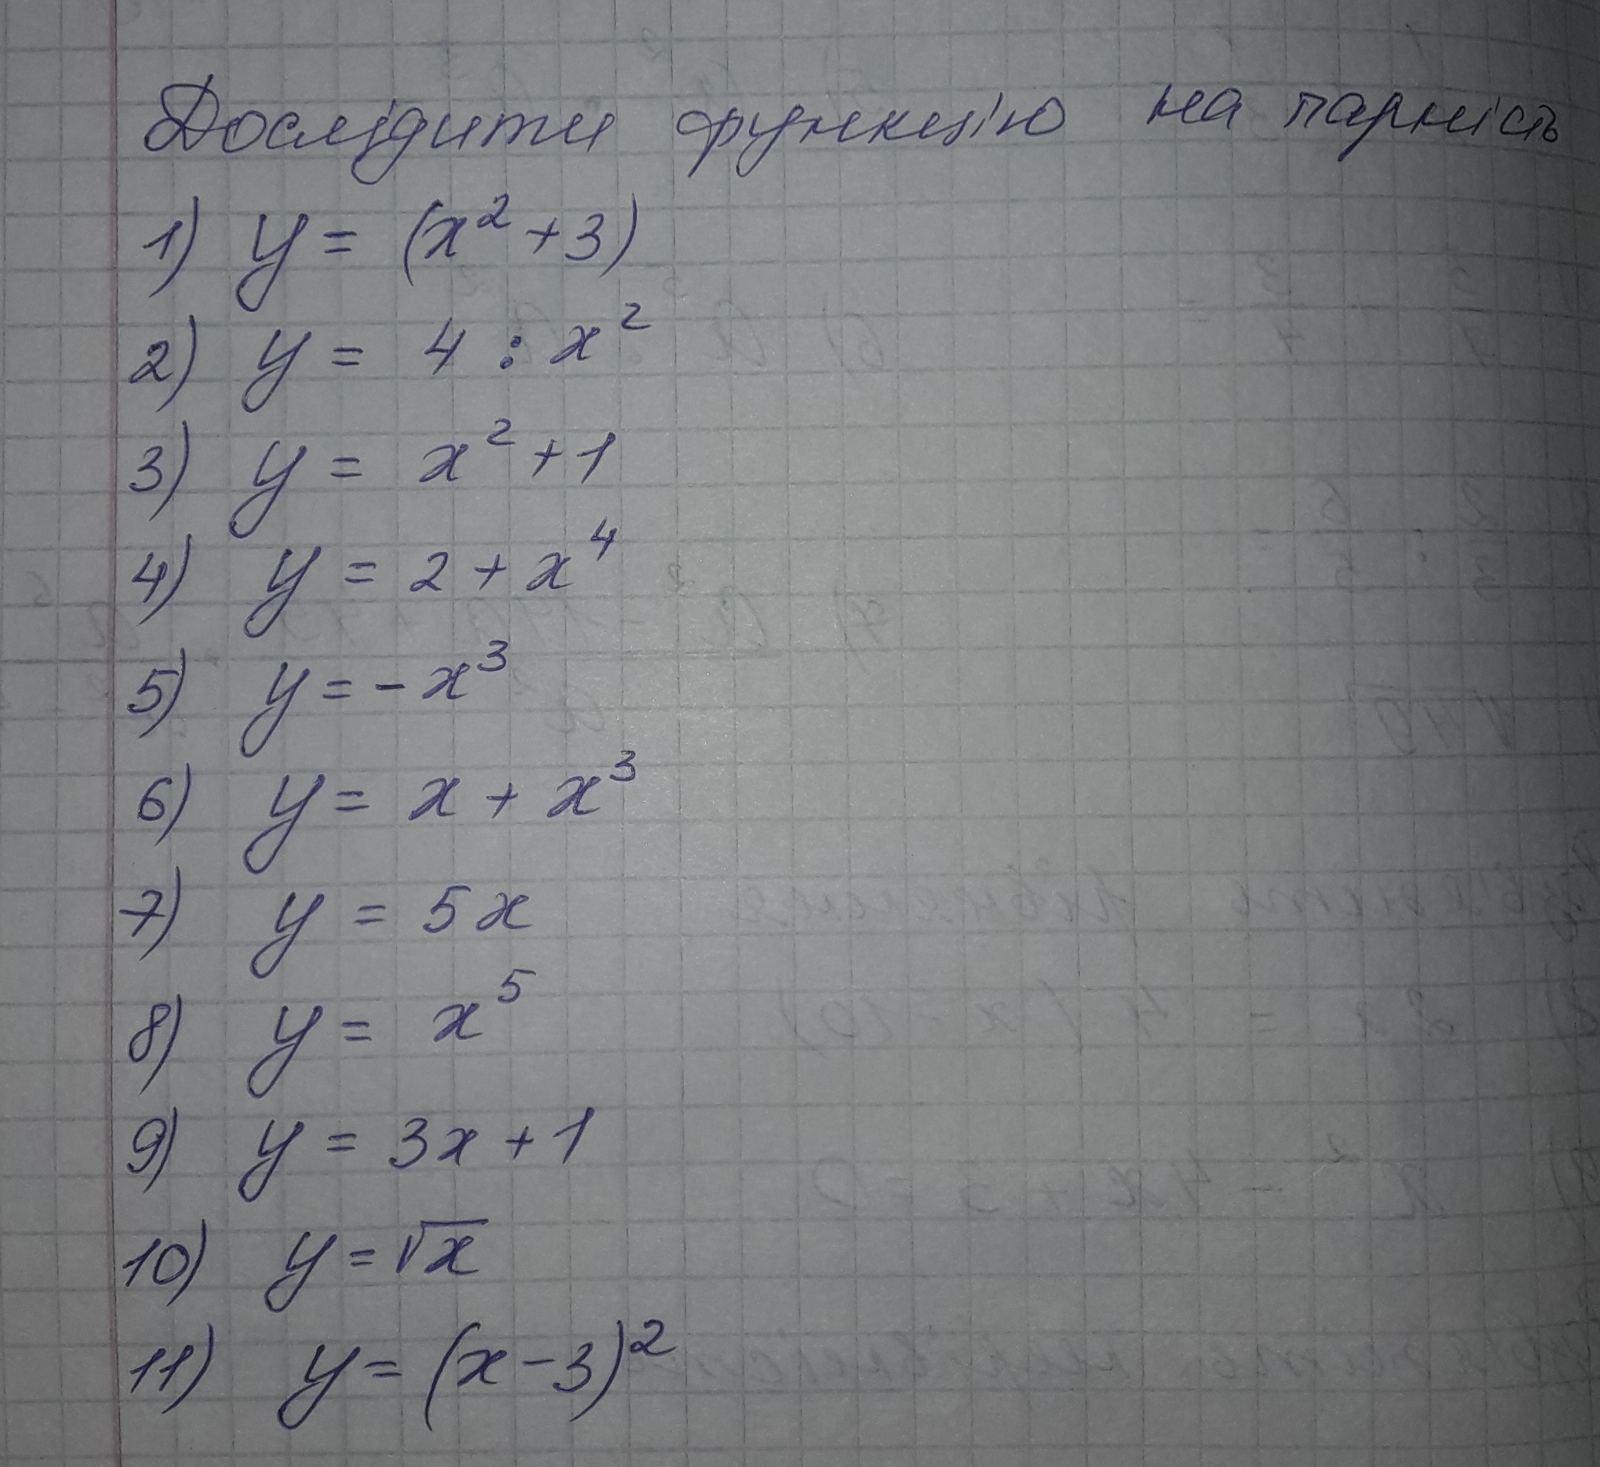 Дослідити функцію на парність
1) y = (x² + 3)
2) y = 4 : x²
3) y = x² + 1
4) y = 2 + x⁴
5) y = - x³
6) y = x + x³
7) y = 5x
8) y = x⁵
9) y = 3x + 1
10) y = √x
11) y = (x - 3)²